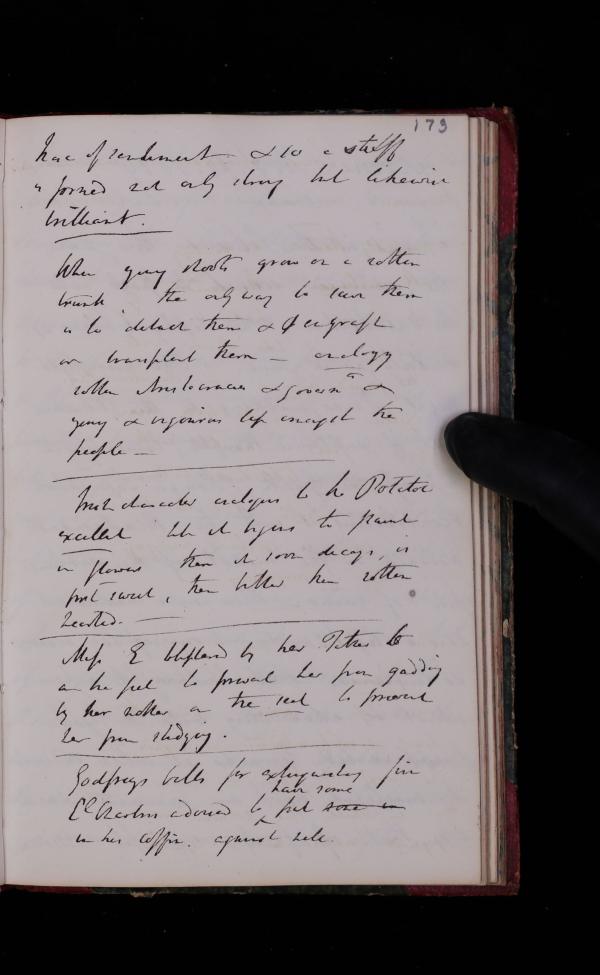 173
have of sentiment - & so a stuff
is formed not only strong but likewise
brilliant.
When young shoots grow on a rotten
trunk the only way to save them
is to detach them & engraft
or transplant them - analogy
rotten Aristocracies & governts &
young & vigorous life amongst the
people -
Irish character analogous to the Potatoe
excellent till it begins to flaunt
in flowers then it soon decays, is
first sweet, then bitter then rotten
hearted. -
Miss E blistered by her Father
on the feet to prevent her from gadding
by her mother on the seat to prevent
her from studying.
Godfreys balls for extinguishing fire
have some
advised to put some in
in his coffin. against hell.